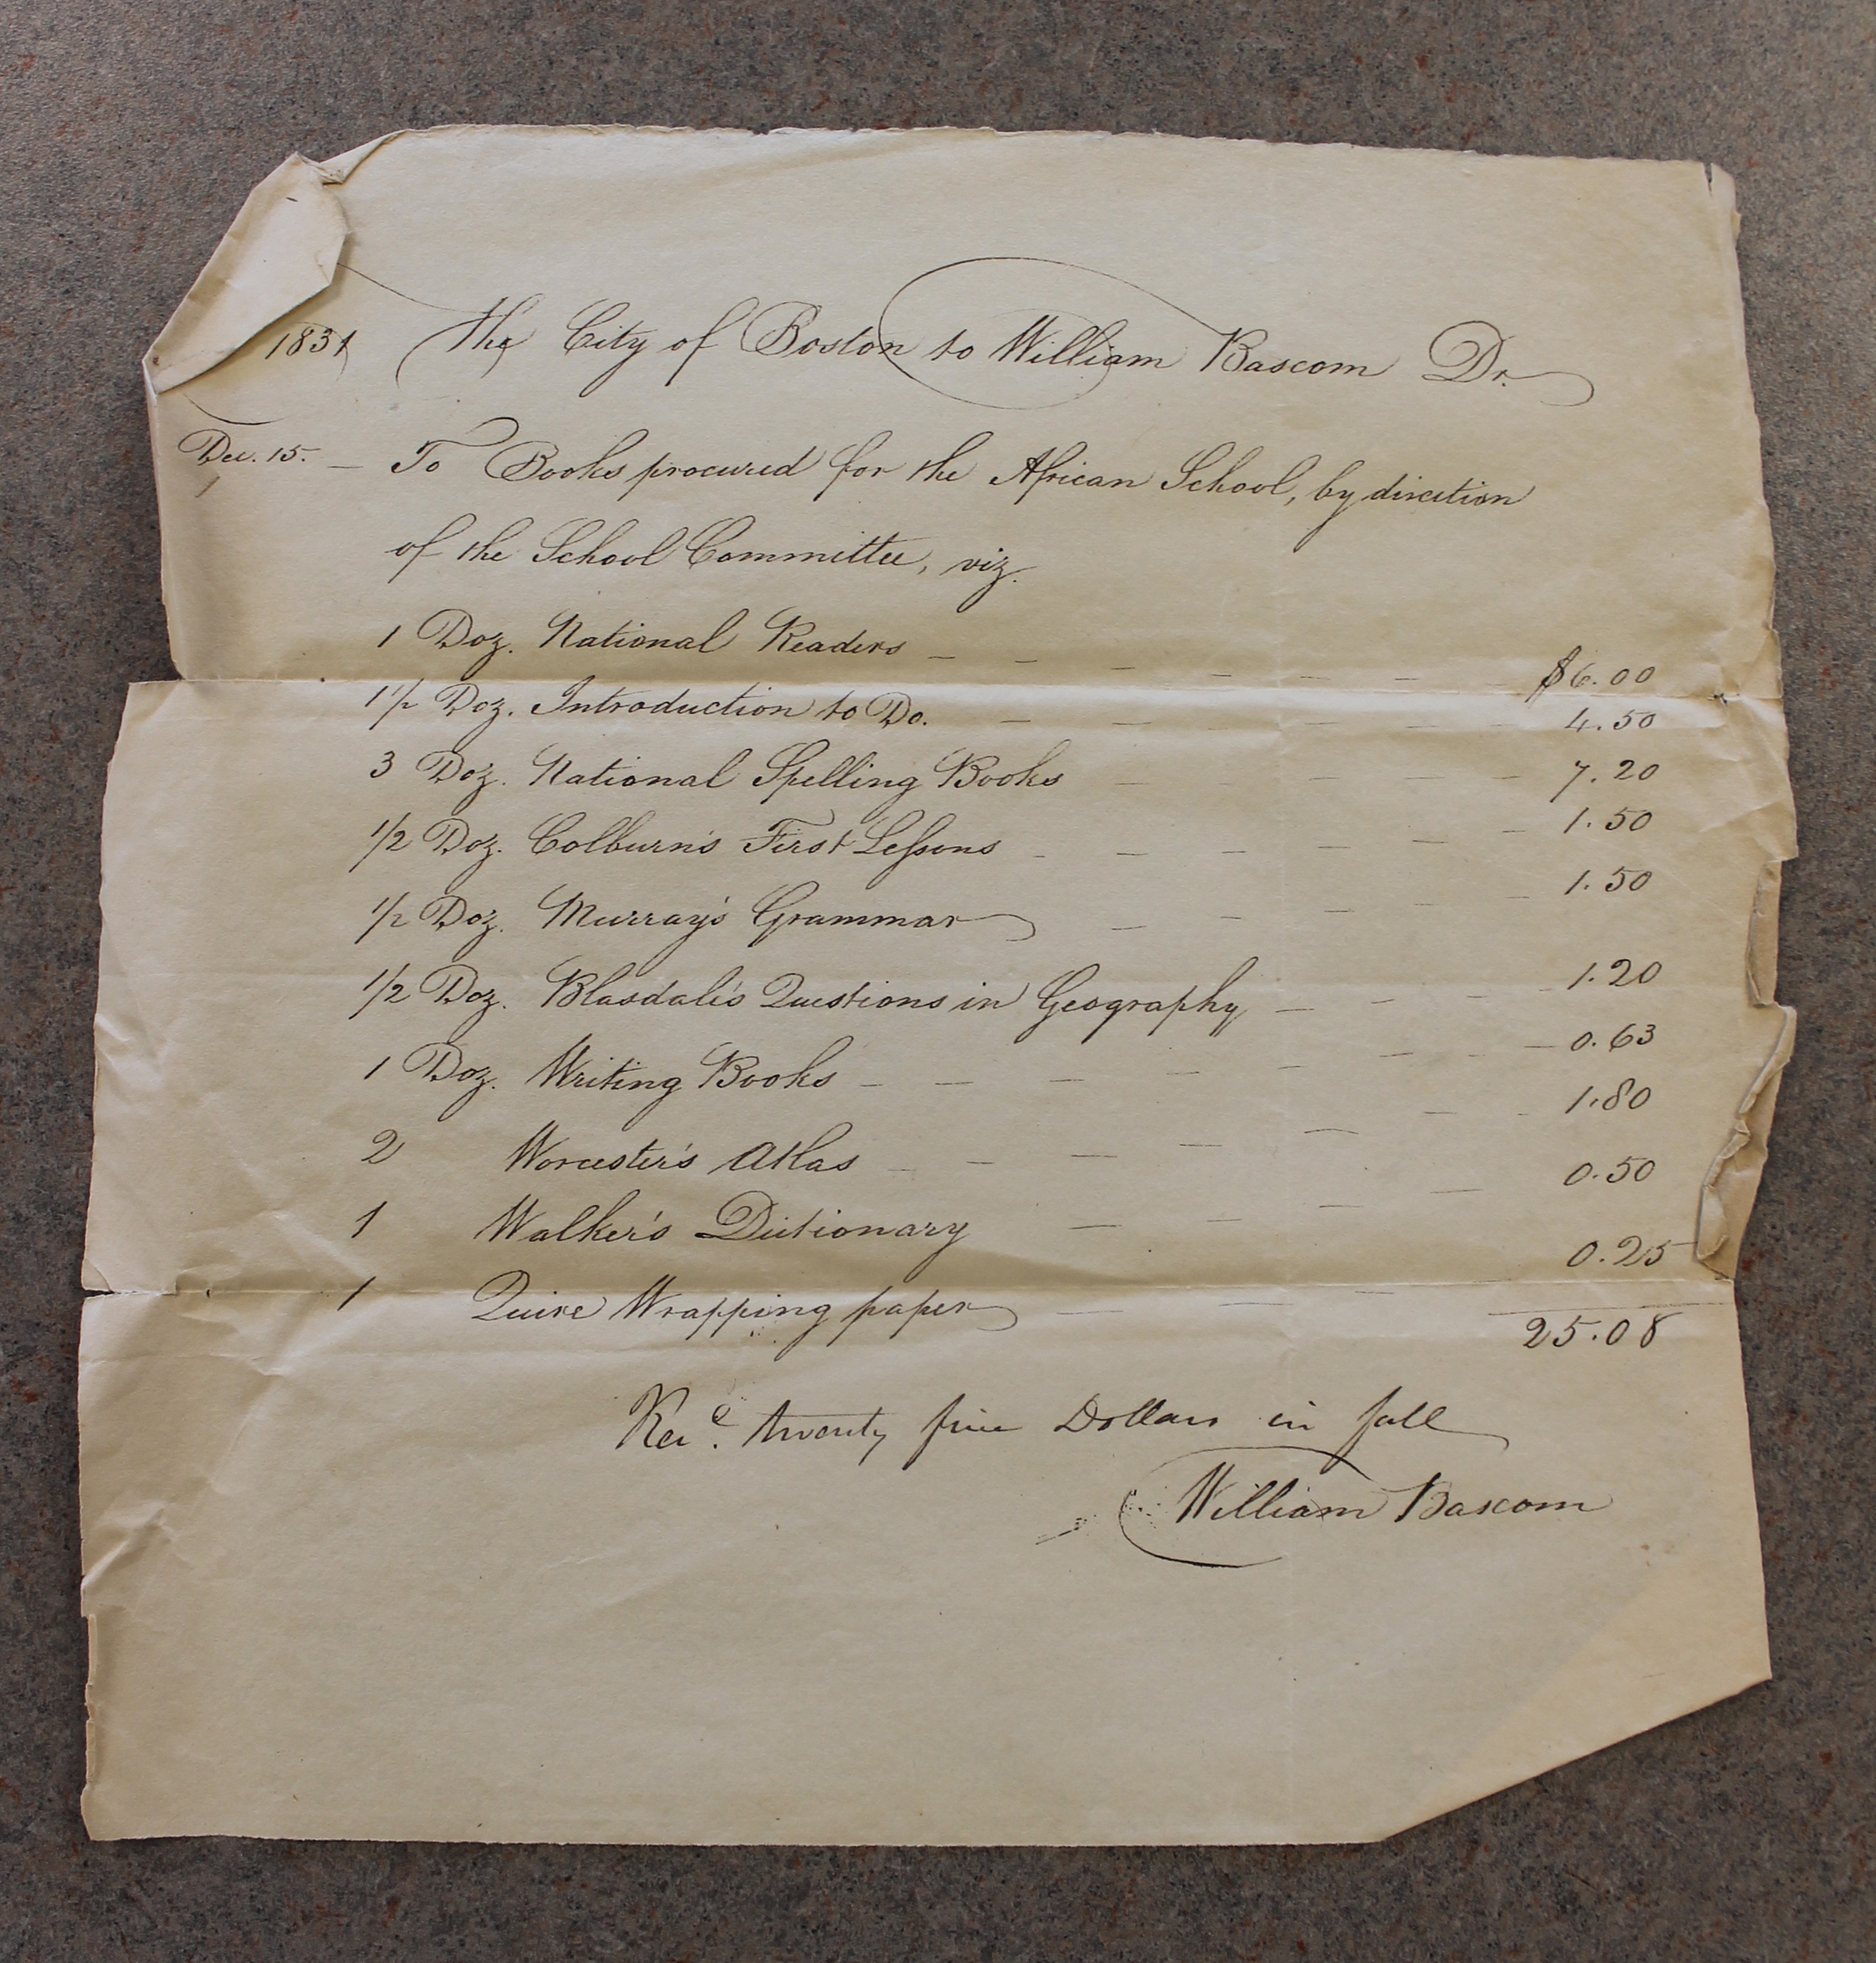 1831 The City of Boston to William Bascom Dr.
Dec. 15. — To Books procured for the African School, by direction
of the School Committee, viz.
1 Doz. National Readers — — — — — — $6.00
1 1/2 Doz. Introduction to Do. — — — — — 4.50
3 Doz. National Spelling Books — — — — 7.20
1/2 Doz. Colburn's First Lessons — — — — — — 1.50
1/2 Doz. Murray's Grammar — — — — — 1.50
1/2 Doz. Blasdale's Questions in Geography — — — — 1.20
1 Doz. Writing Books — — — — — — — 0.63
2 Worcester's Atlas — — — — — — — 1.80
1 Walker's Dictionary — — — — 0.50
1 Quire Wrapping paper — — — 0.25
25.08
Recd. twenty five Dollars in full
William Bascom